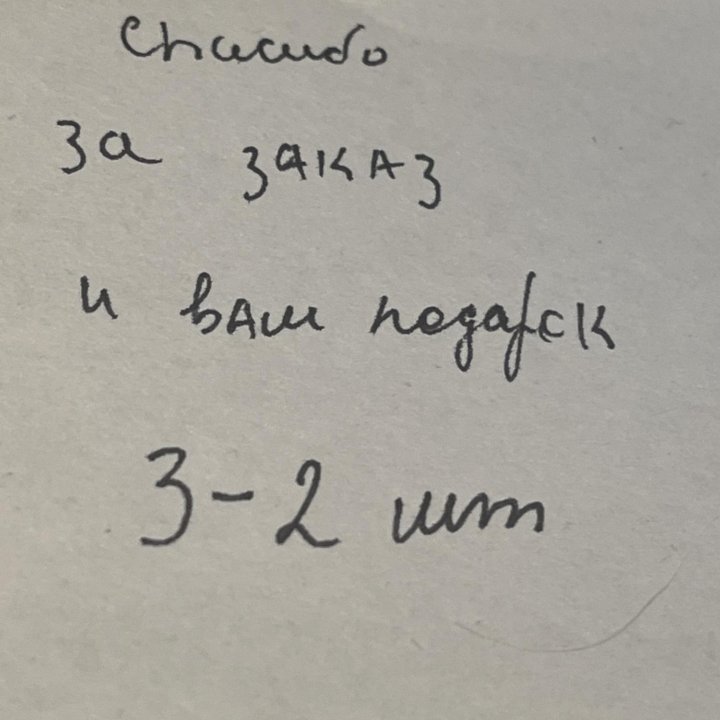 Спасибо
за заказ
и ваш подарок
3-2 шт